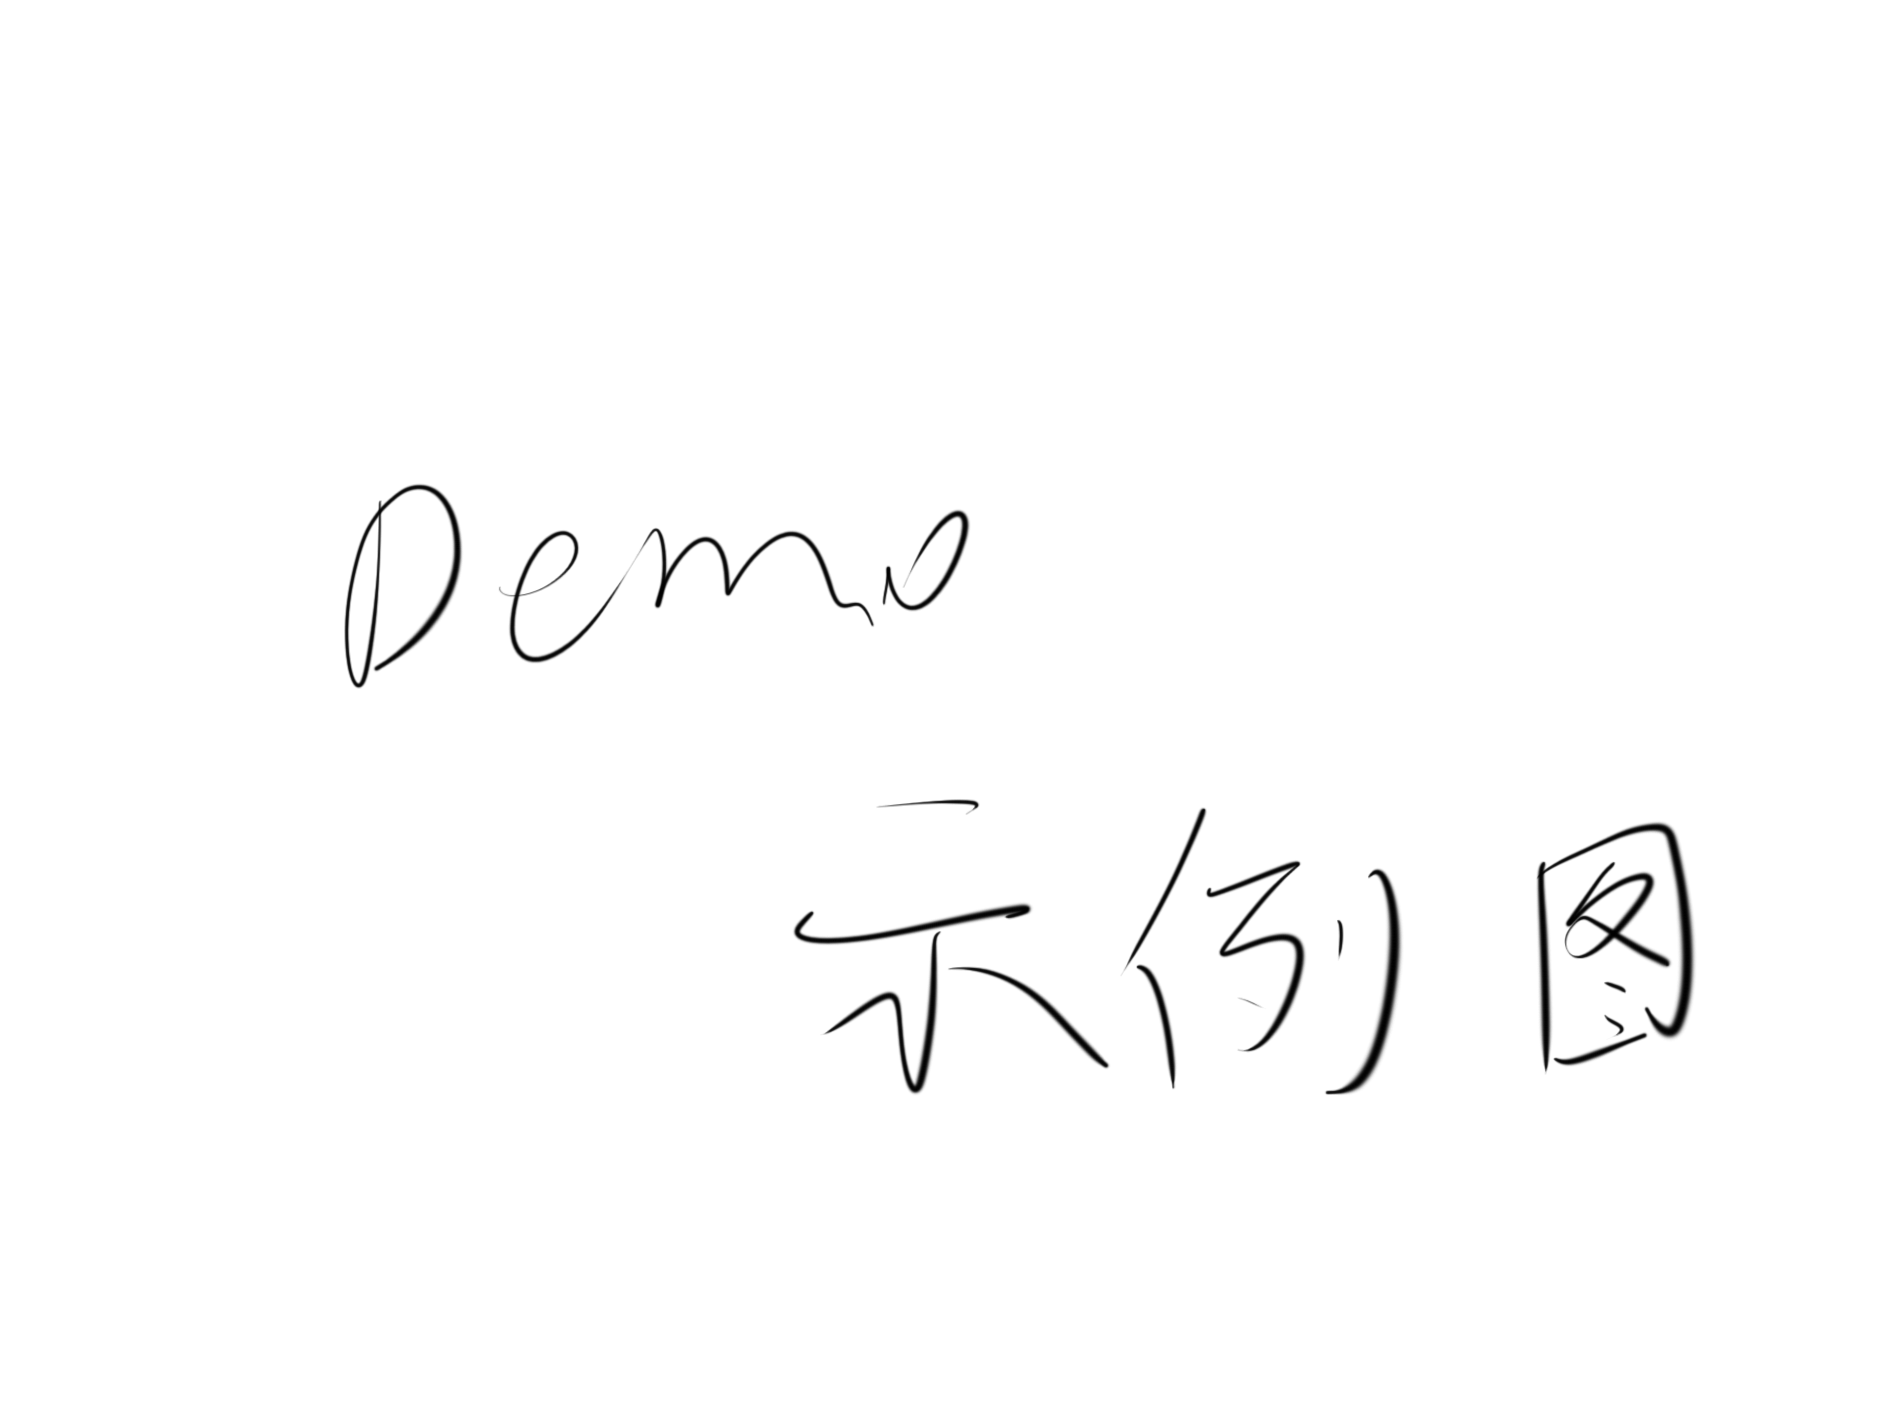 Demo
示例图